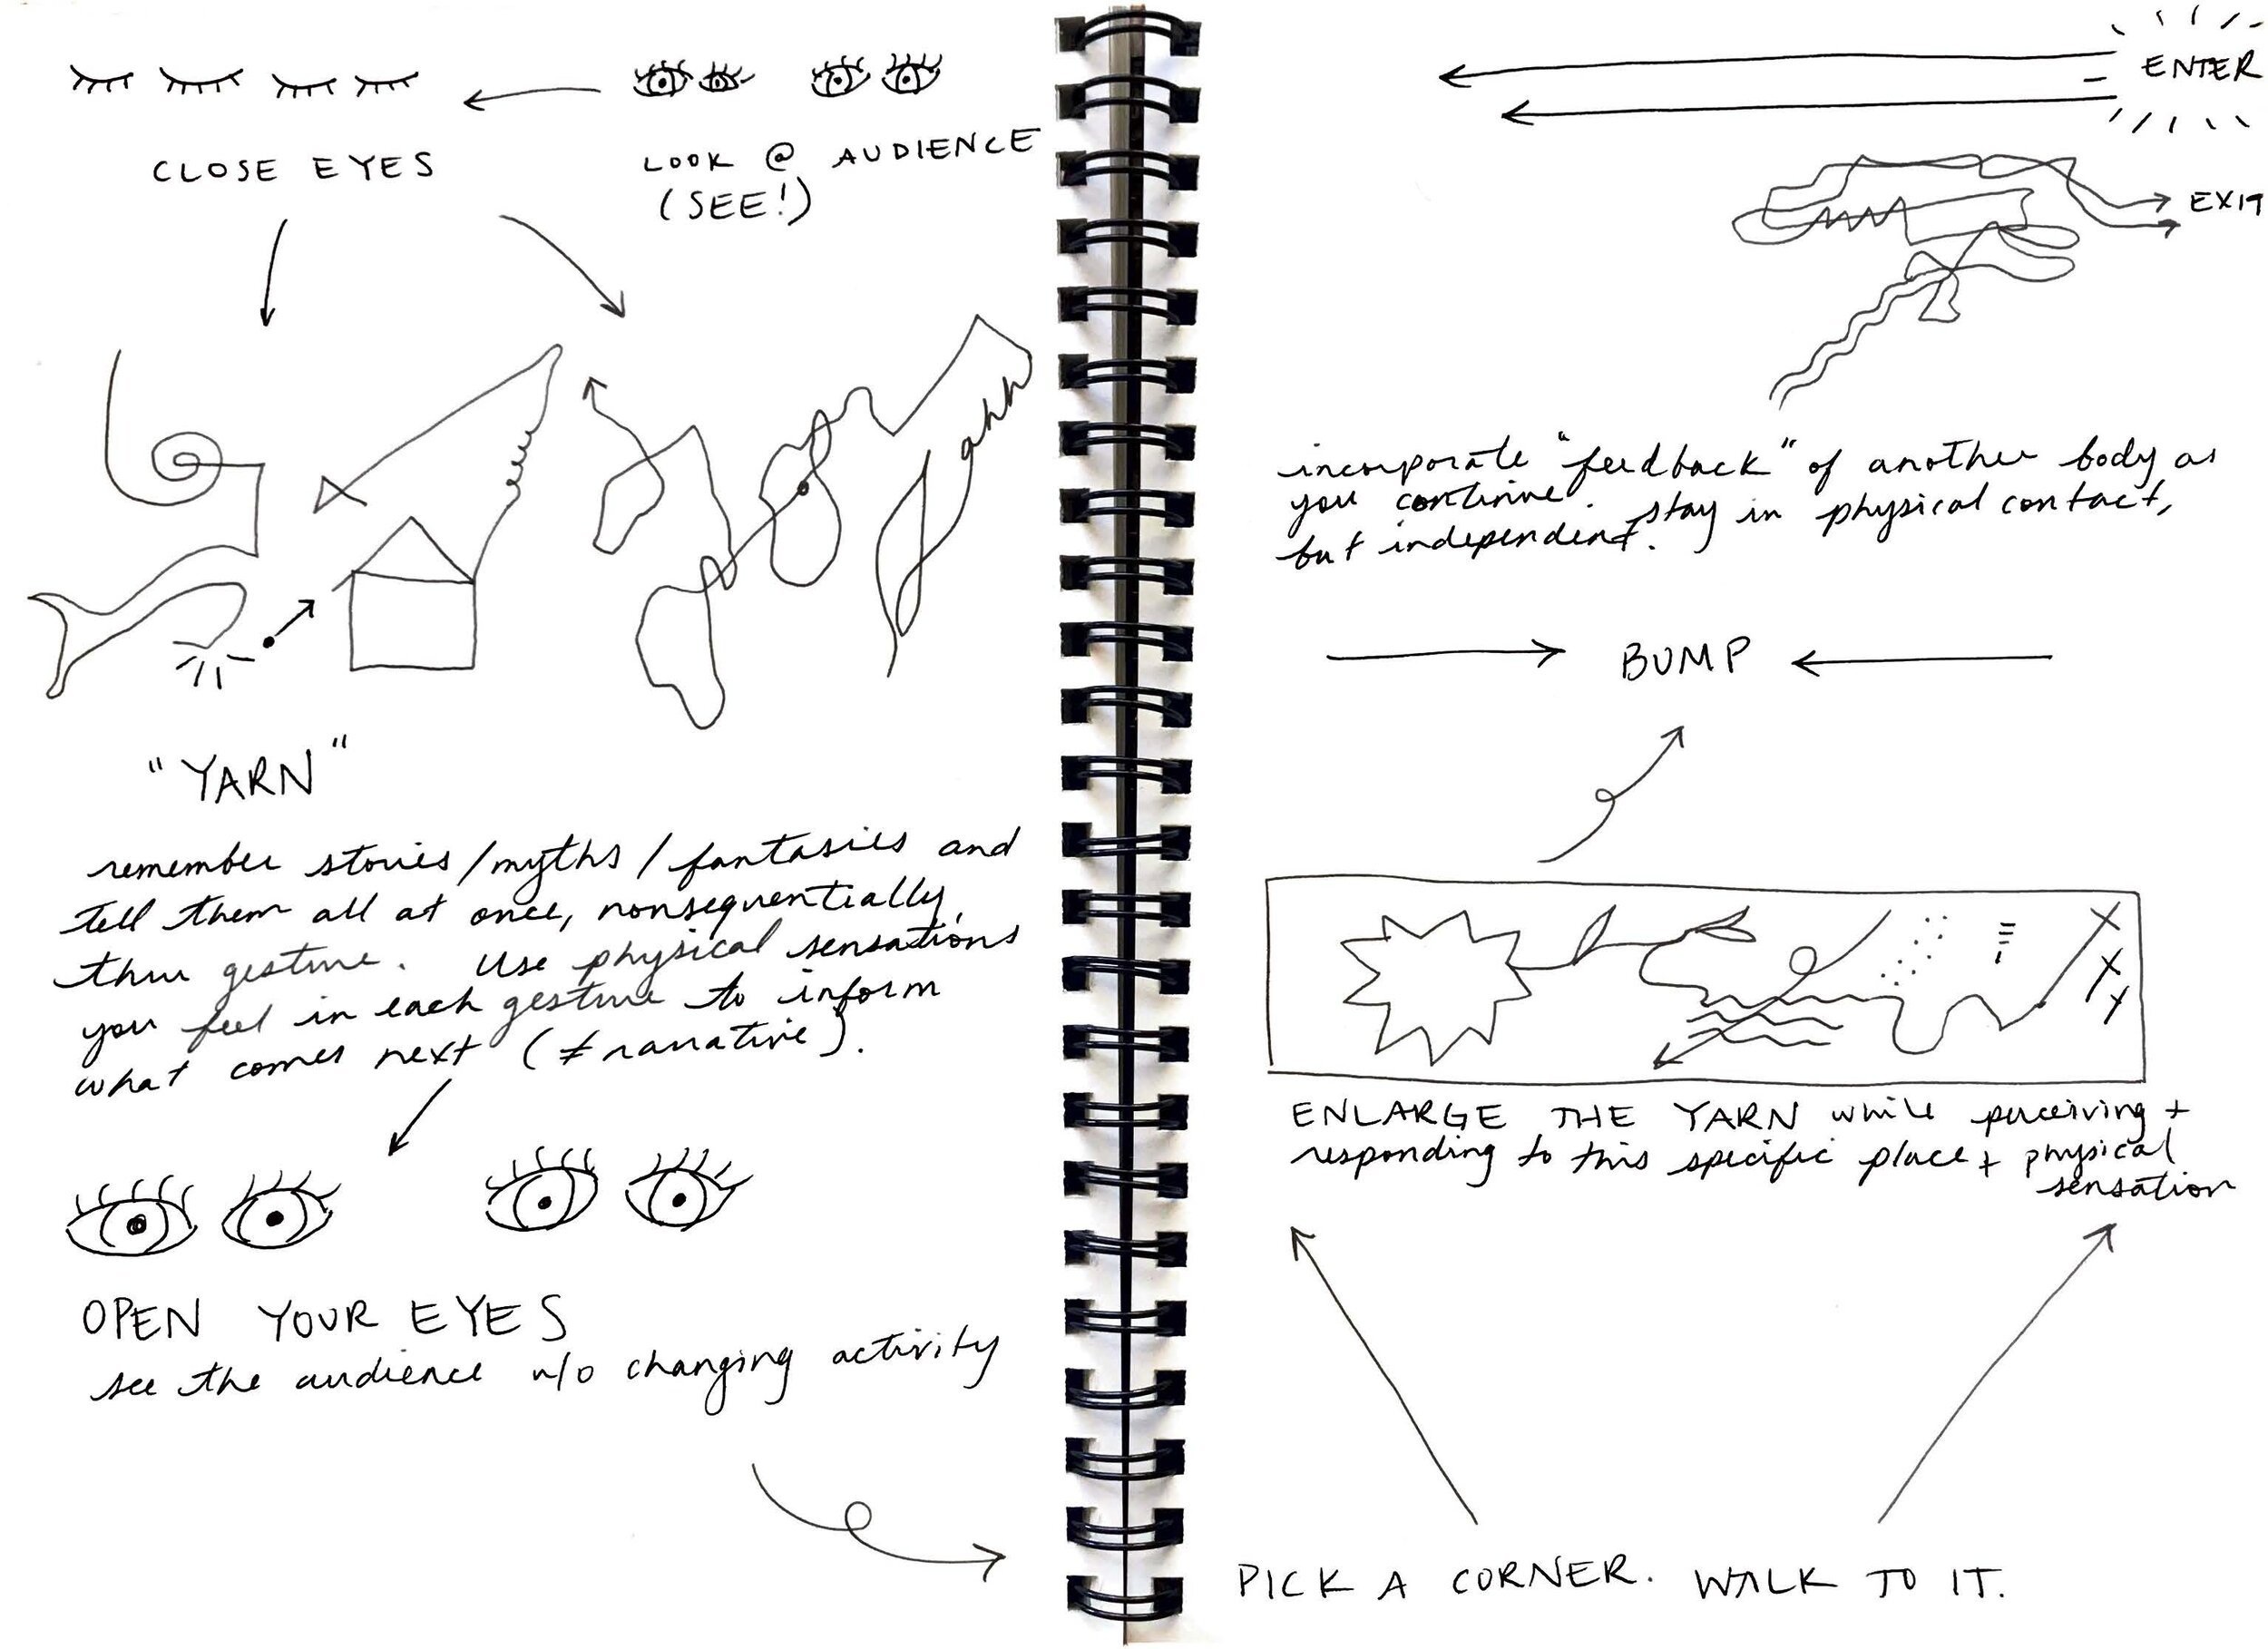 CLOSE EYES
LOOK @ AUDIENCE
(SEE!)
"YARN"
remember stories/myths/fantasies and
tell them all at once, nonsequentially,
thru gesture. Use physical sensations
you feel in each gesture to inform
what comes next (≠ narrative).
OPEN YOUR EYES
see the audience w/o changing activity
ENTER
EXIT
incorporate "feedback" of another body as
you continue. stay in physical contact,
but independent.
BUMP
ENLARGE THE YARN while perceiving +
responding to this specific place + physical
sensation
PICK A CORNER. WALK TO IT.